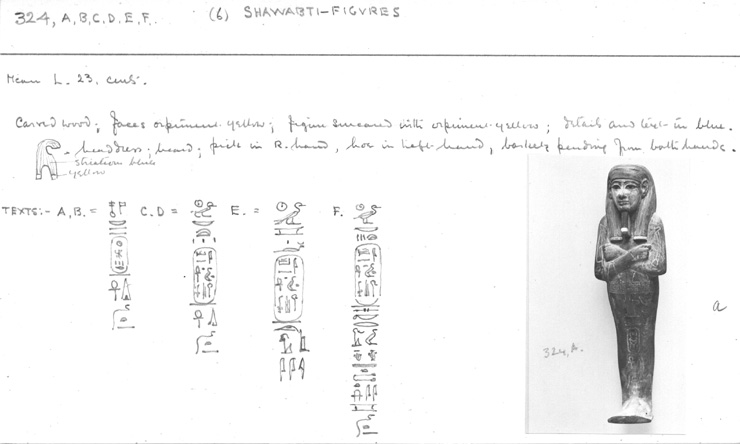 324, A, B, C, D, E, F.
(6) SHAWABTI-FIGVRES
Mean L. 23. cms.
Carved wood; faces orpiment yellow; figure smeared with orpiment-yellow; details and text in blue.
- headdress; beard; pick in R. hand, hoe in left-hand, baskets pending from both hands.
striations blue
yellow
TEXTS:- A, B. = C. D = E. = F.
324, A.
a